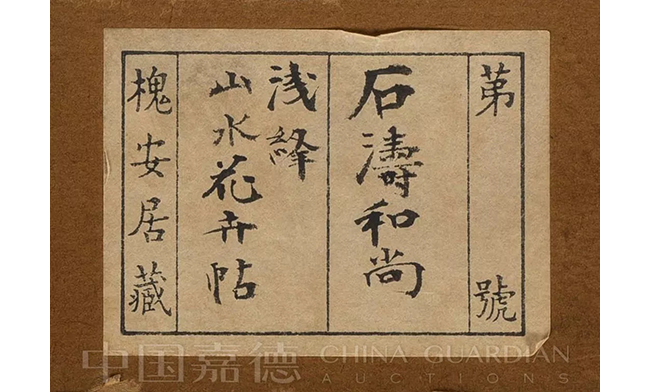 第 號
石濤和尚
浅絳
山水花卉帖
槐安居藏
中国嘉德 CHINA GUARDIAN
AUCTIONS